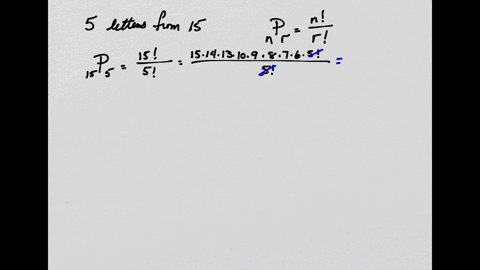 5 letters from 15 nPr = n!/r!
15P5 = 15!/5! = 15·14·13·10·9·8·7·6·5!/5! =